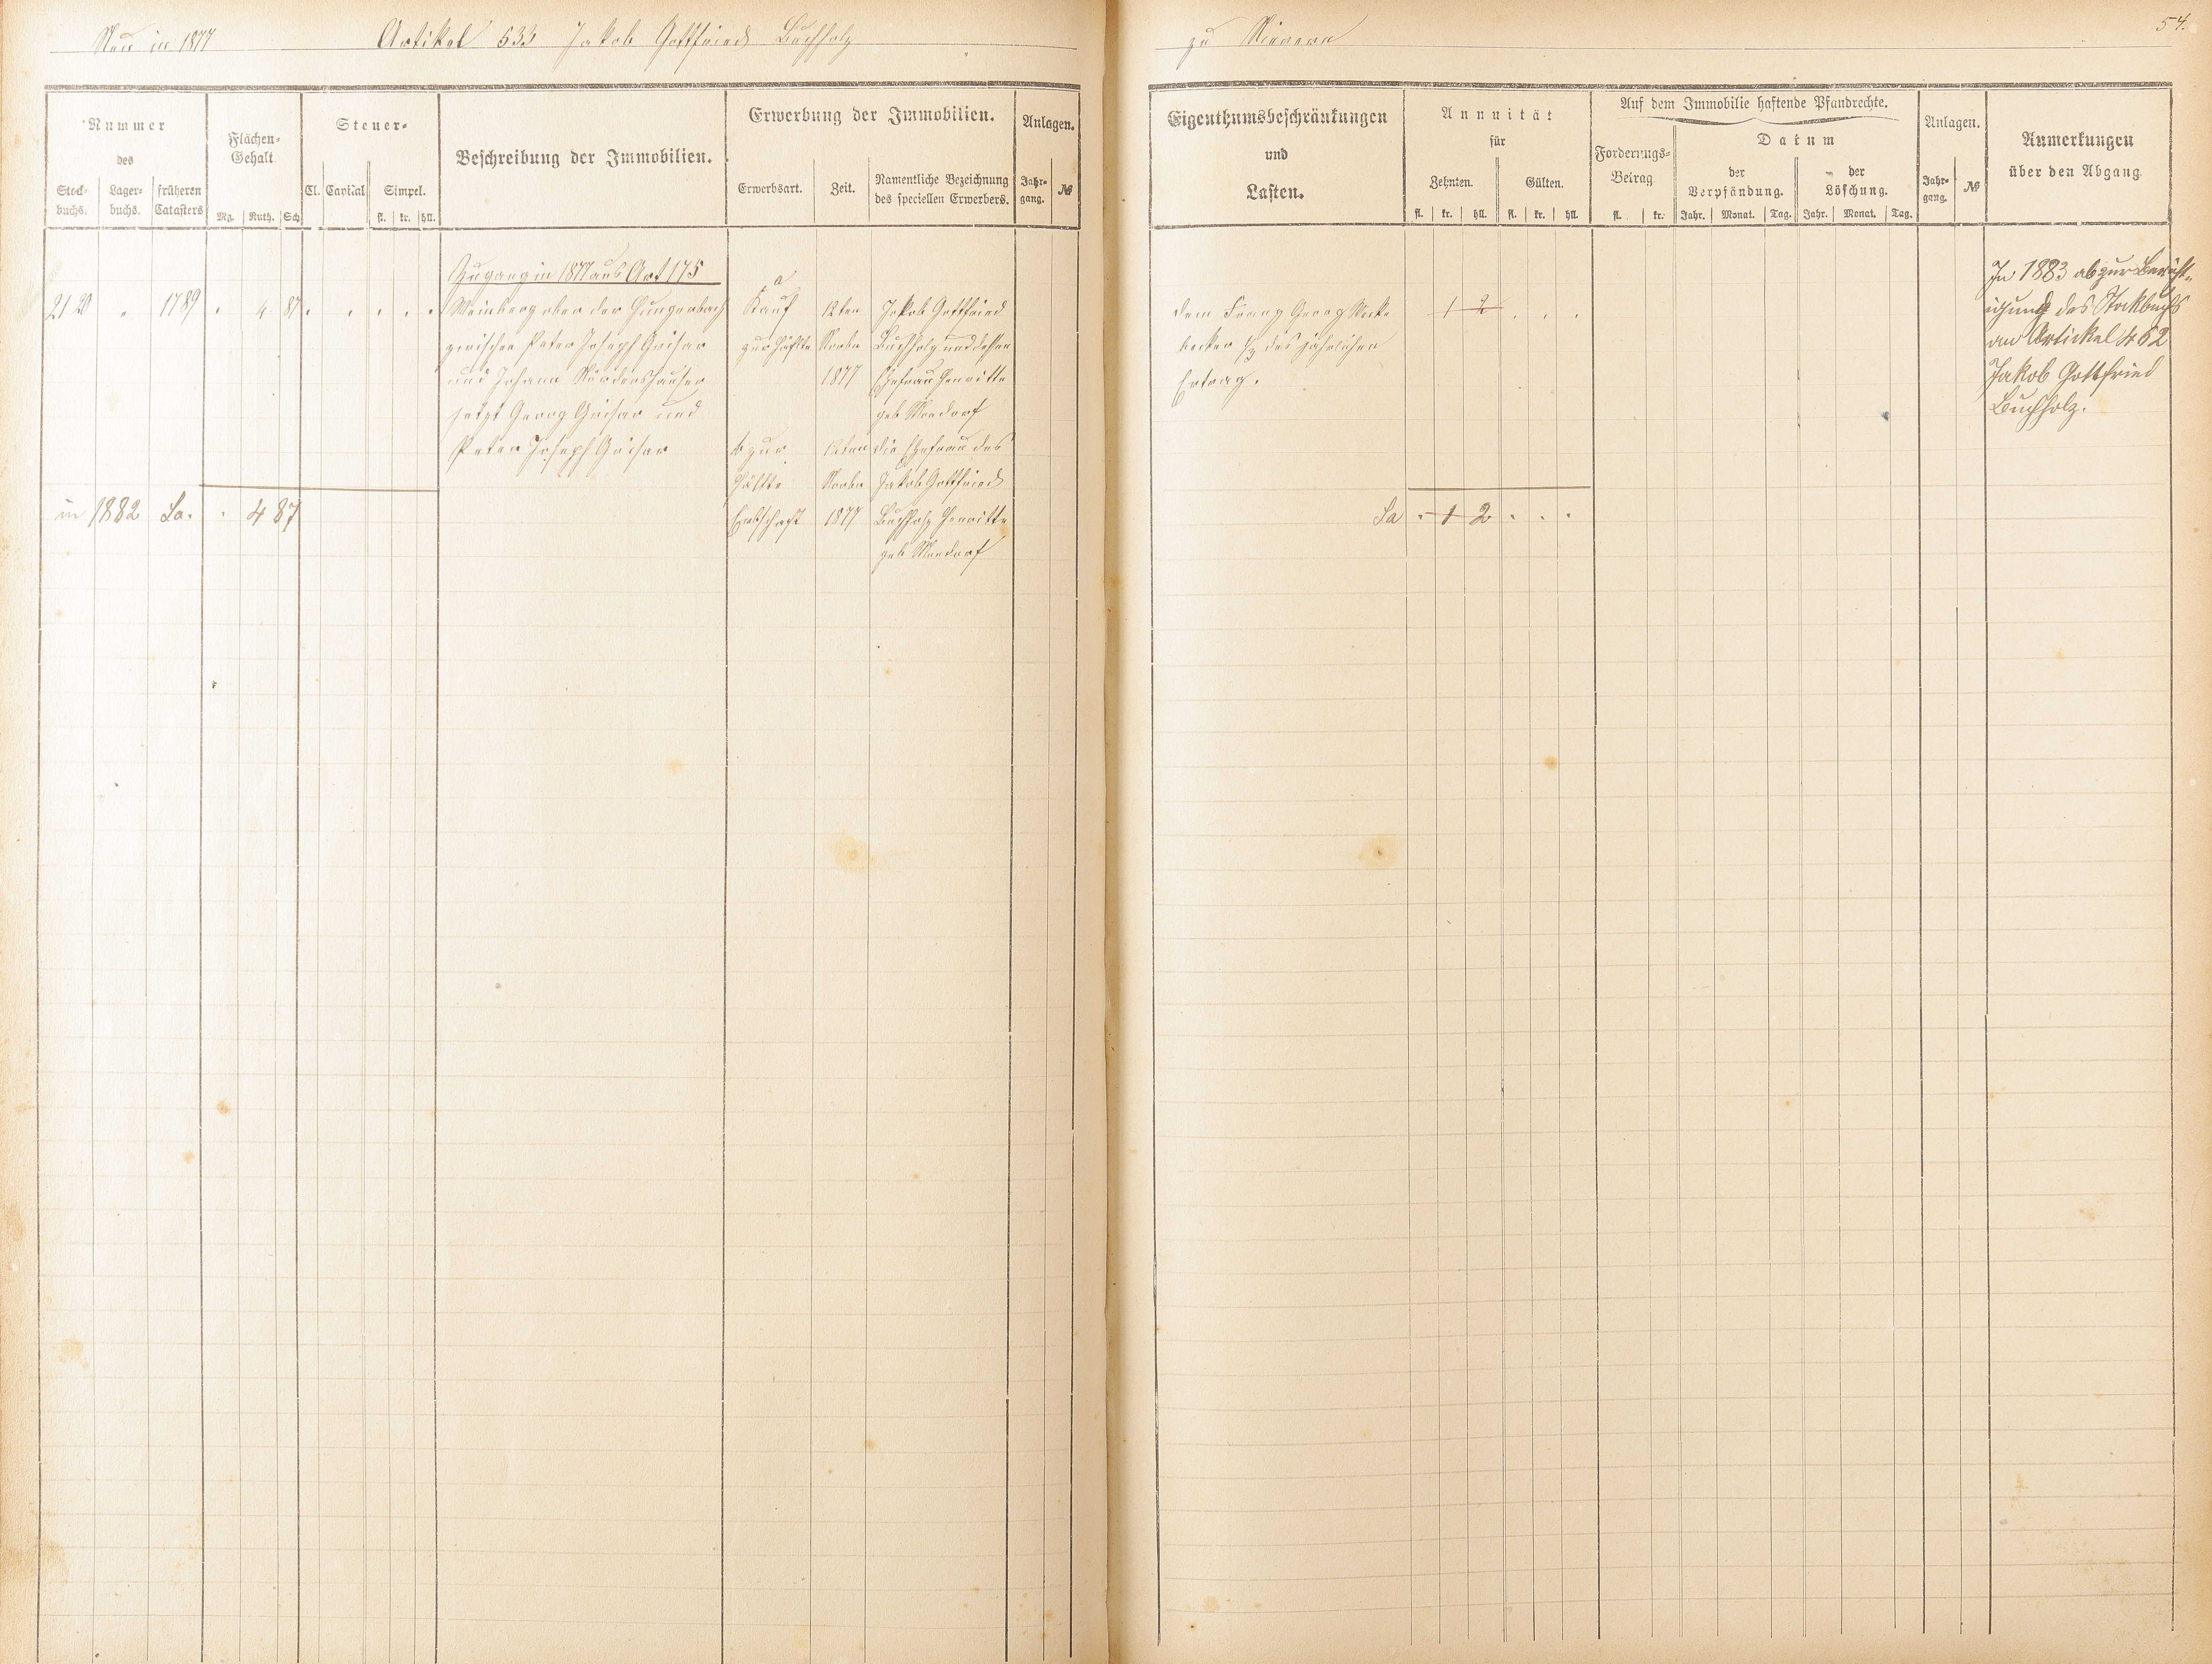 Neu in 1877 Artikel 533 Jakob Gottfried Buchholz
Nummer
des
Stock-
buchs.
Lager-
buchs.
früheren
Catasters
Flächen-
Gehalt
Mg. Ruth. Sch
Steuer-
Cl. Capital Simpel.
fl. kr. hll.
Beschreibung der Immobilien.
Erwerbung der Immobilien.
Erwerbsart. Zeit.
Namentliche Bezeichnung
des speciellen Erwerbers.
Anlagen.
Jahr-
gang.
№
Zugang in 1877 aus Art 175
2120 " 1789 . 4 87 . . . . .
Weinberg ober der Hungerbach
zwischen Peter Joseph Grisar
und Johann
jetzt Georg Grisar und
Peter Joseph Grisar
a
Kauf
zur Hälfte
12ten
Novbr
1877
Jakob Gottfried
Buchholz und dessen
Ehefrau Henritte
geb
b zur
Hälfte
Erbschaft
12ten
Novbr
1877
die Ehefrau des
Jakob Gottfried
Buchholz Henritte
geb
in 1882 Sa. . 4 87
zu
54.
Eigenthumsbeschränkungen
und
Lasten.
Annuität
für
Zehnten. Gülten.
fl. kr. hll. fl. kr. hll.
Auf dem Immobilie haftende Pfandrechte.
Forderungs-
Betrag
fl. kr.
Datum
der
Verpfändung.
Jahr. Monat. Tag.
der
Löschung.
Jahr. Monat. Tag.
Anlagen.
Jahr-
gang.
№
Anmerkungen
über den Abgang
dem Franz Georg
des jährlichen
Ertrag.
1 2 . . .
Sa . 1 2 . . .
In 1883 ab zur Bericht-
igung des Stockbuchs
an Artickel 462
Jakob Gottfried
Buchholz.